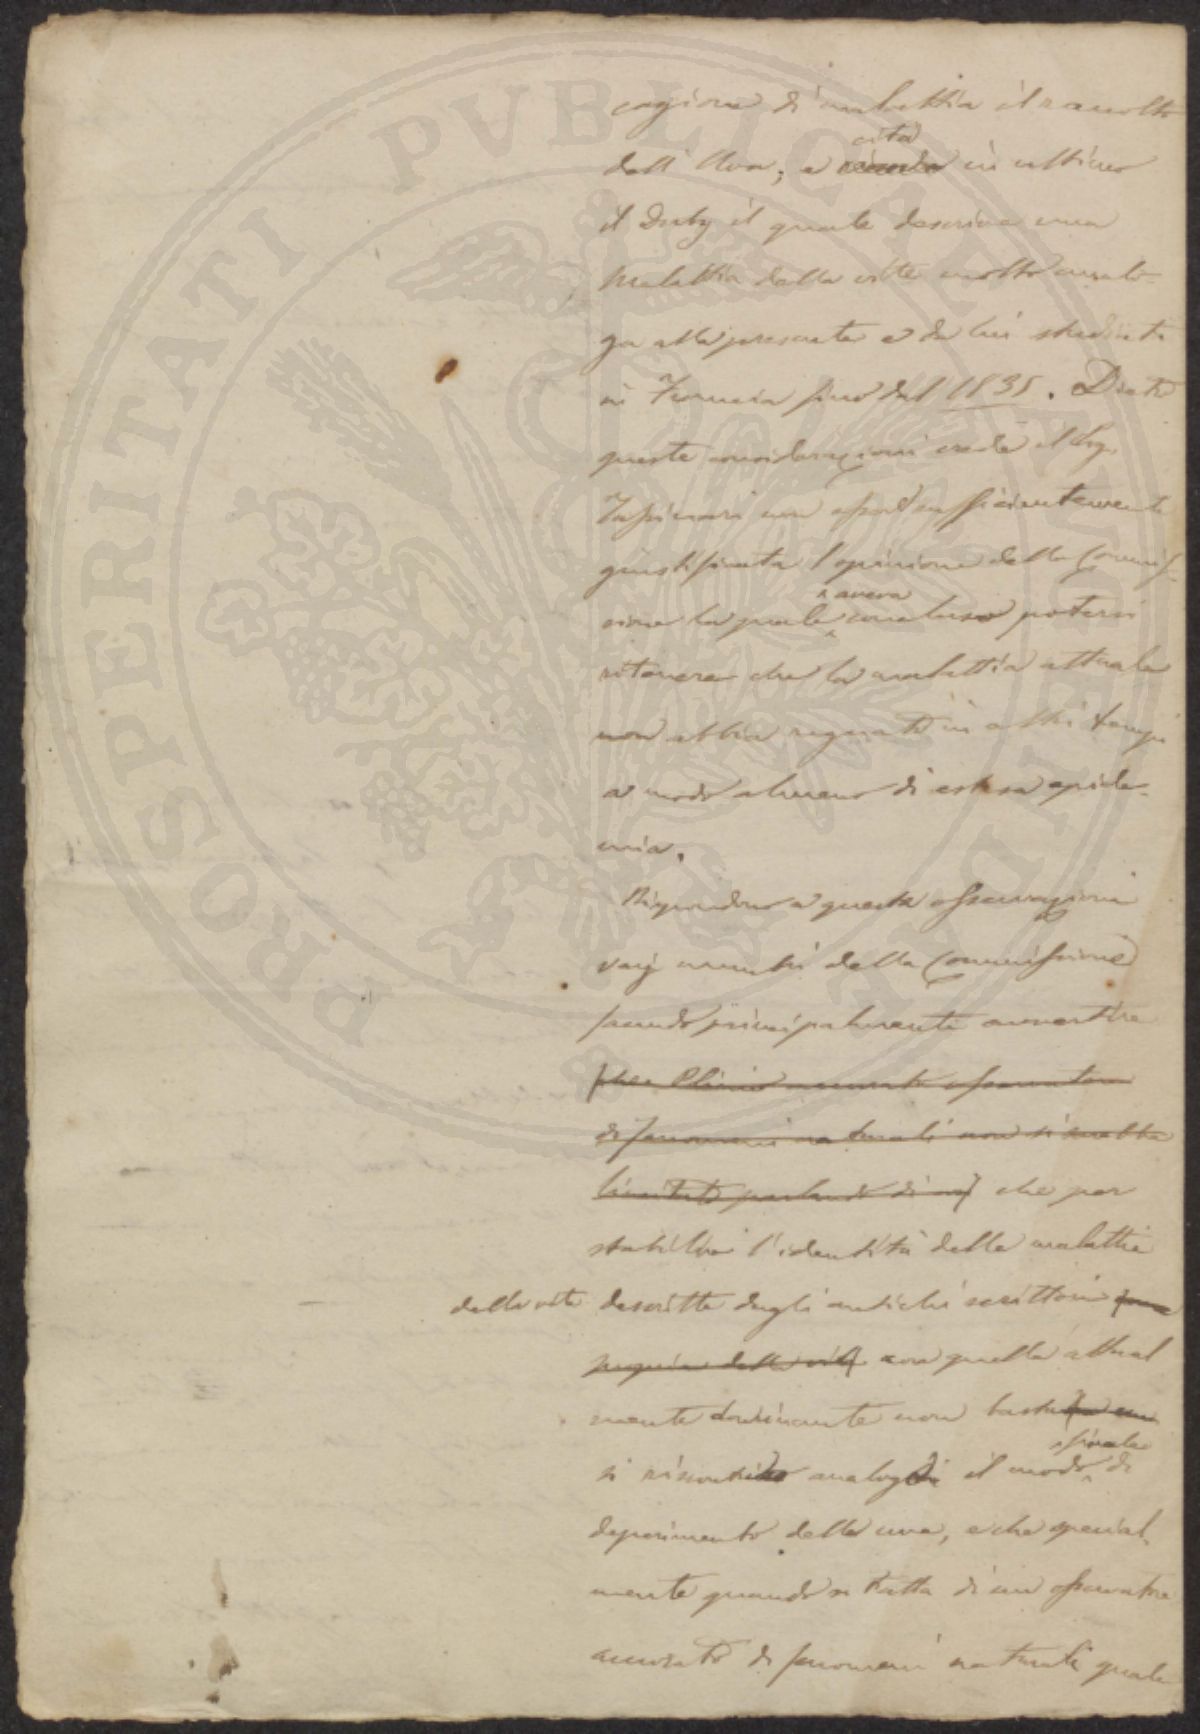 PROSPERITATI PVBLICAE AVGENDAE
cagione di malattia il raccolto
dell' Uva; e cita in ultimo
il Duby il quale descrive una
malattia della vite molto analo-
ga alla presente e da lui studiata
in Francia fino dal 1835. Dietro
queste considerazioni crede il Sig.
non esser sufficientemente
giustificata l'opinione della Commis-
sione la quale aveva concluso potersi
ritenere che la malattia attuale
non abbia regnato in altri tempi
a modo almeno di estesa epide-
mia.
Rispondono a queste osservazioni
varj membri della Commissione
facendo principalmente avvertire
che Plinio accurato osservatore
di fenomeni naturali non si sarebbe
limitato parlando di che per
stabilire l'identità delle malattie
della vite descritte dagli antichi scrittori
con quella attual
mente dominante non basta
si riscontri analogo il modo finale di
deperimento delle uve, e che special-
mente quando si tratta di un osservatore
accurato di fenomeni naturali quale